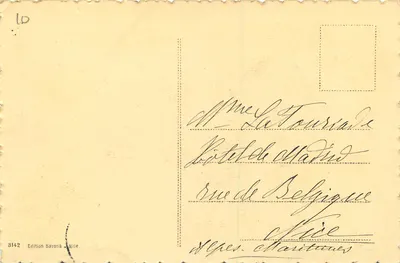 10
Mme La
Hôtel de Madrid
rue de Belgique
Nice
Alpes. Maritimes
5142 Edition